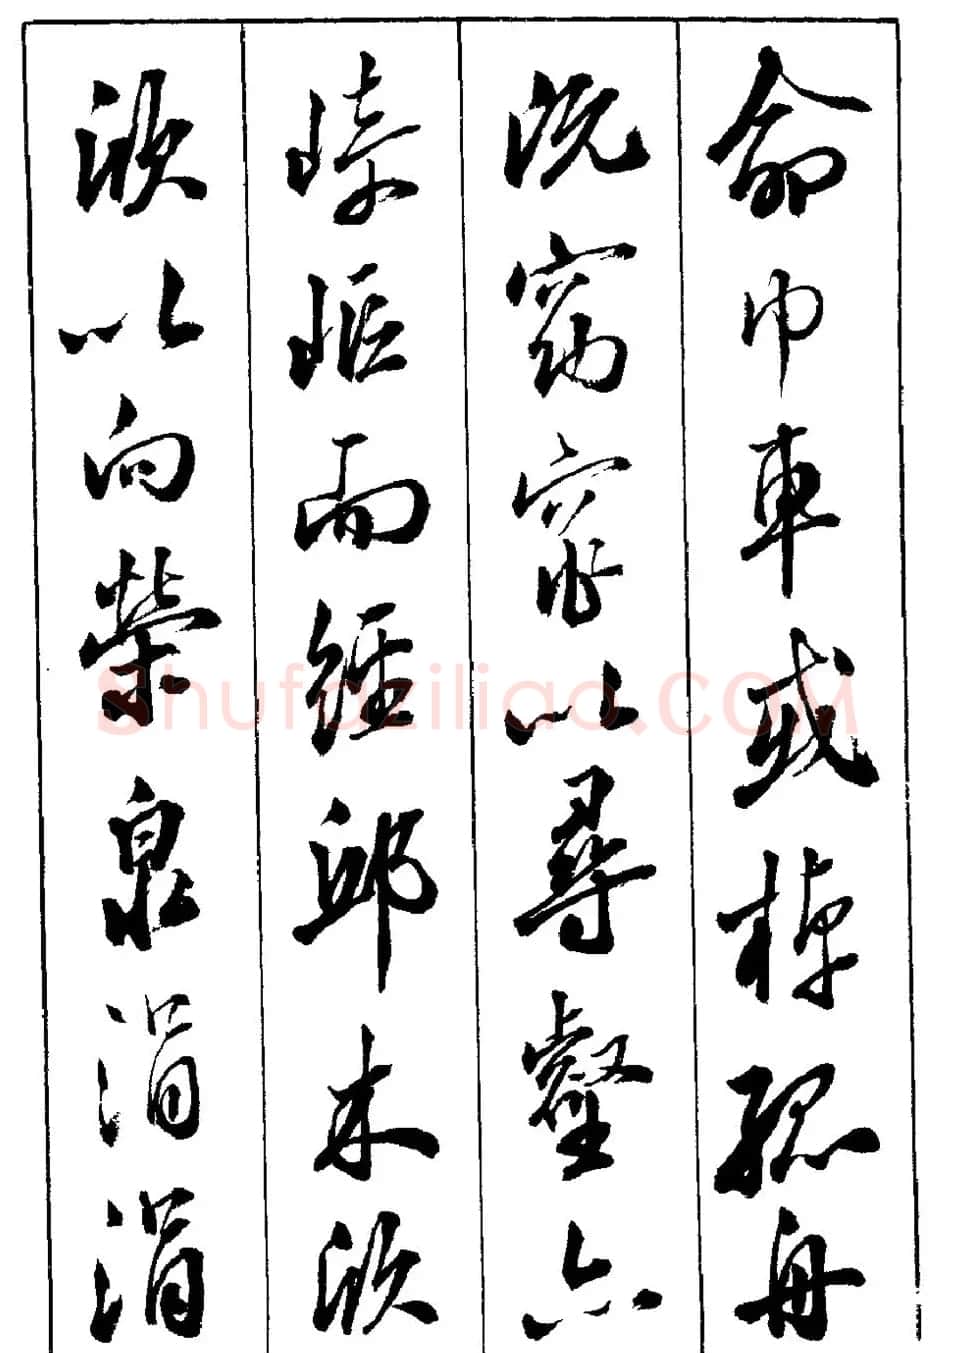 命巾車或棹孤舟
既窈窕以尋壑亦
崎嶇而經邱木欣
欣以向榮泉涓涓
Shufaziliao.COM